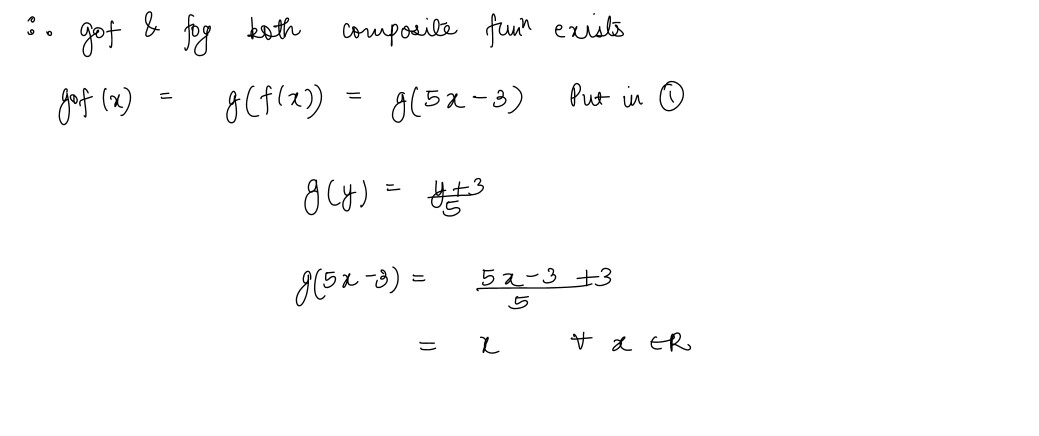 ∴ gof & fog both composite funⁿ exists
gof (x) = g(f(x)) = g(5x-3) Put in ①
g(y) = y+3/5
g(5x-3) = 5x-3+3/5
= x ∀ x ∈R